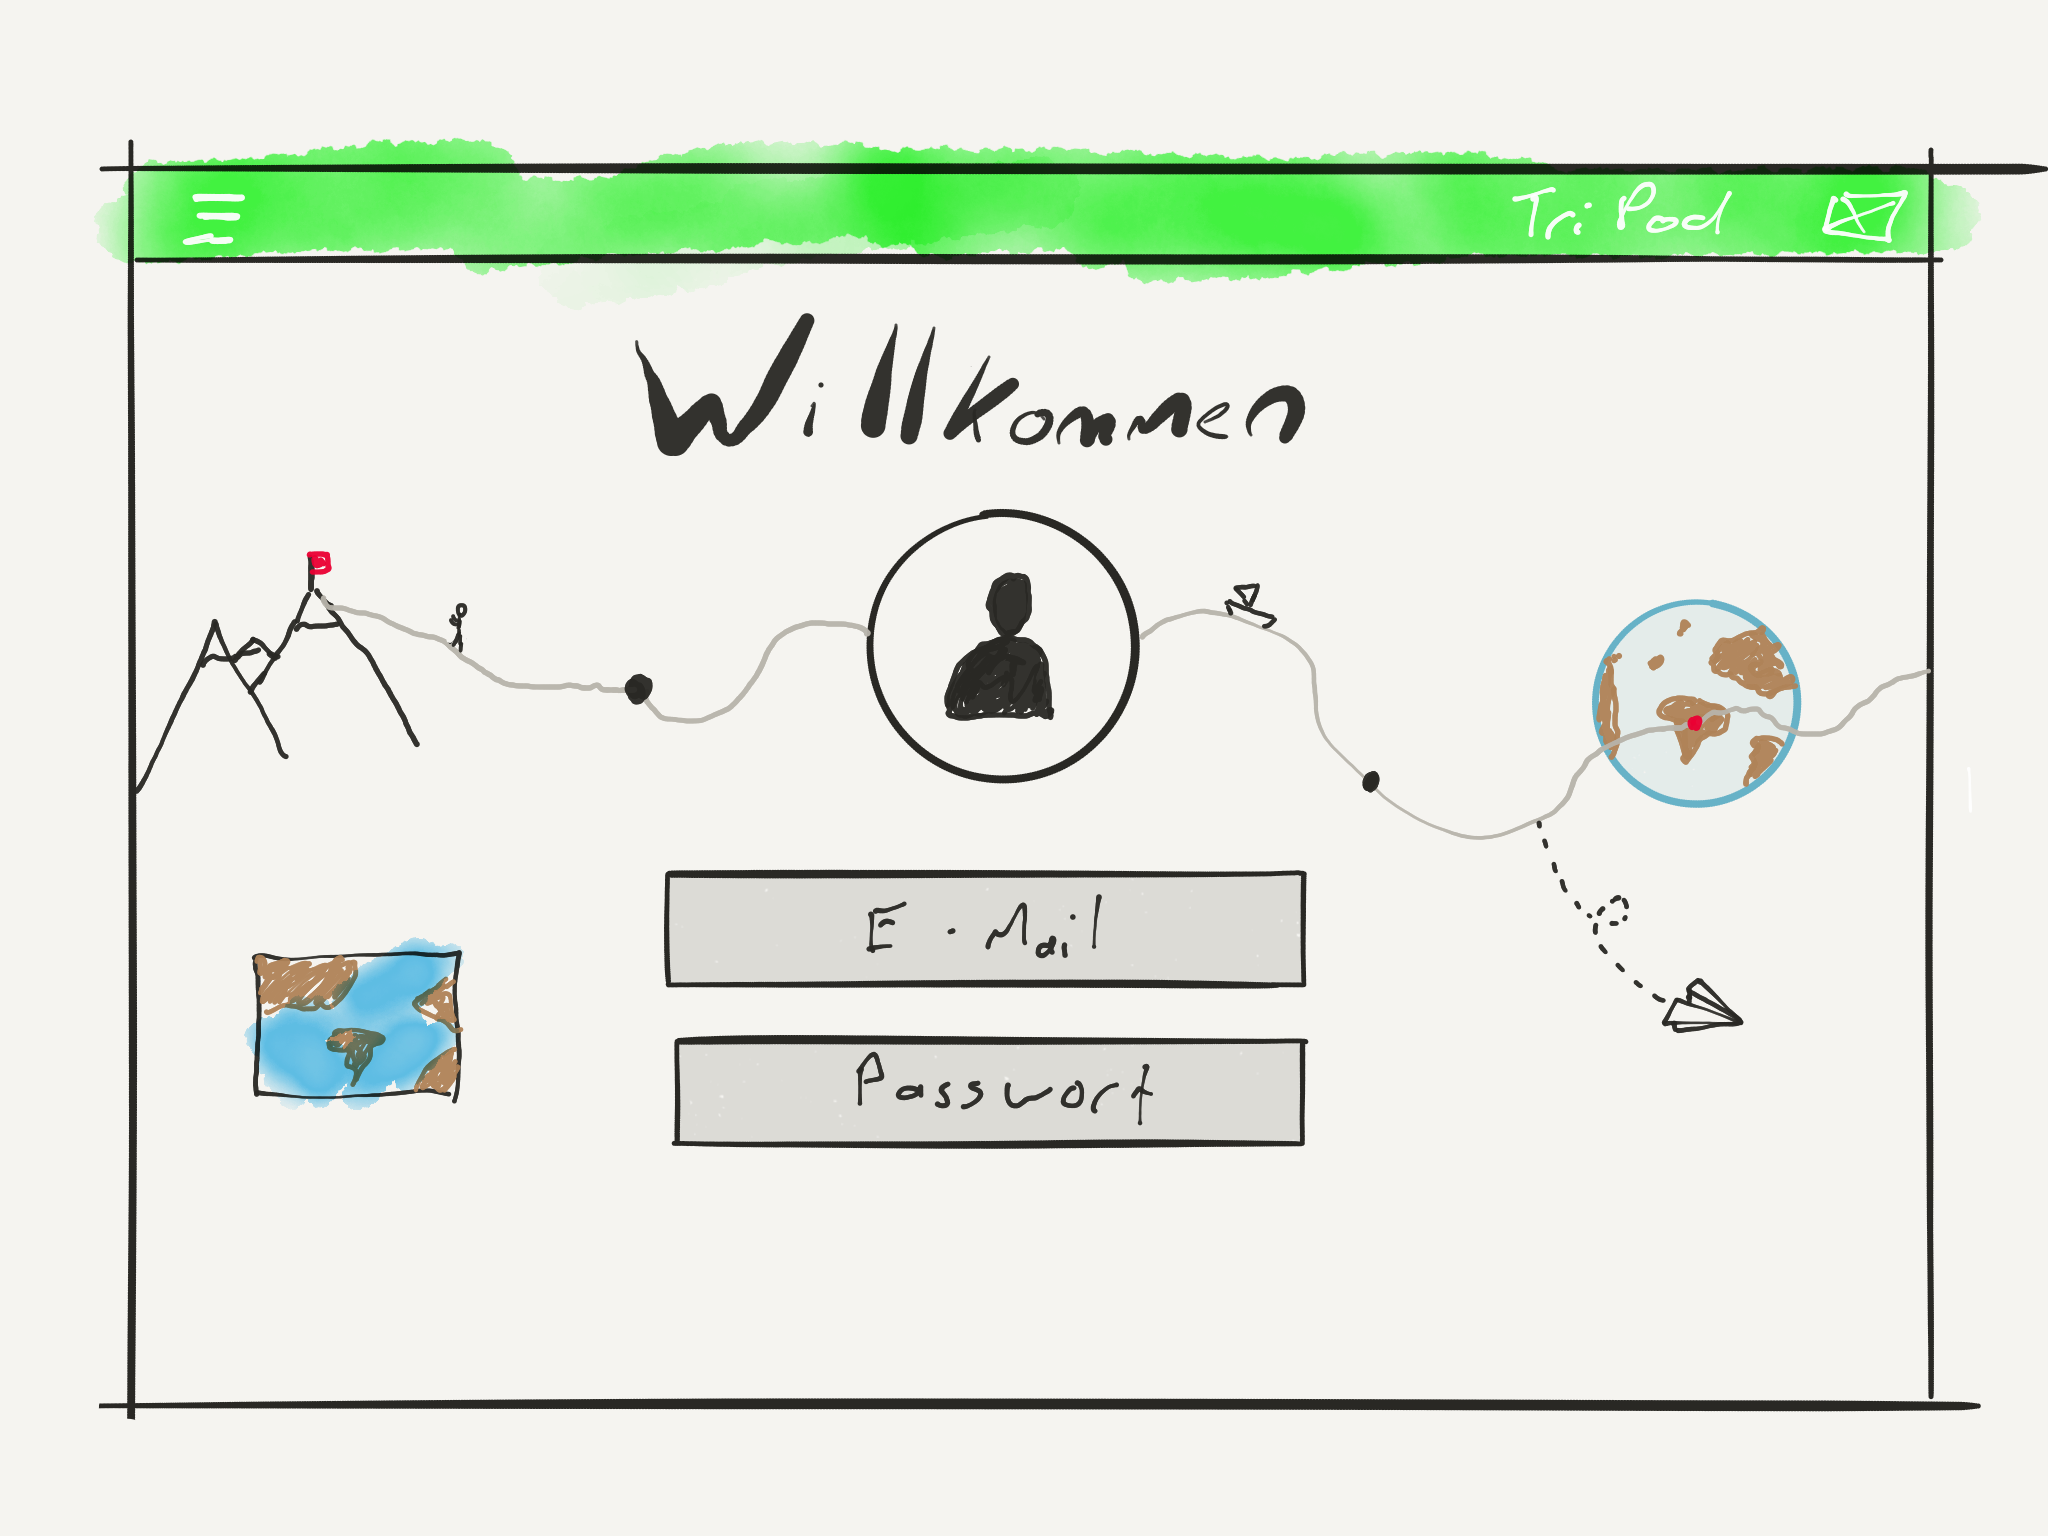 Tri Pod
Willkommen
E-Mail
Passwort